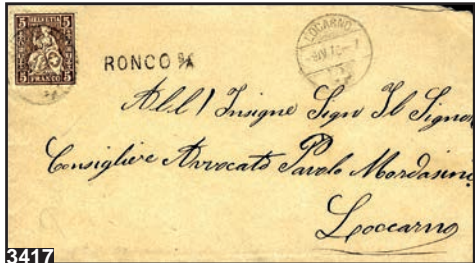 5 HELVETIA 5
5 FRANCO 5
RONCO S/A
LOCARNO
All' Insigne Sign Il Signor
Consigliere Avvocato Paolo Mordasini
Loccarno
3417